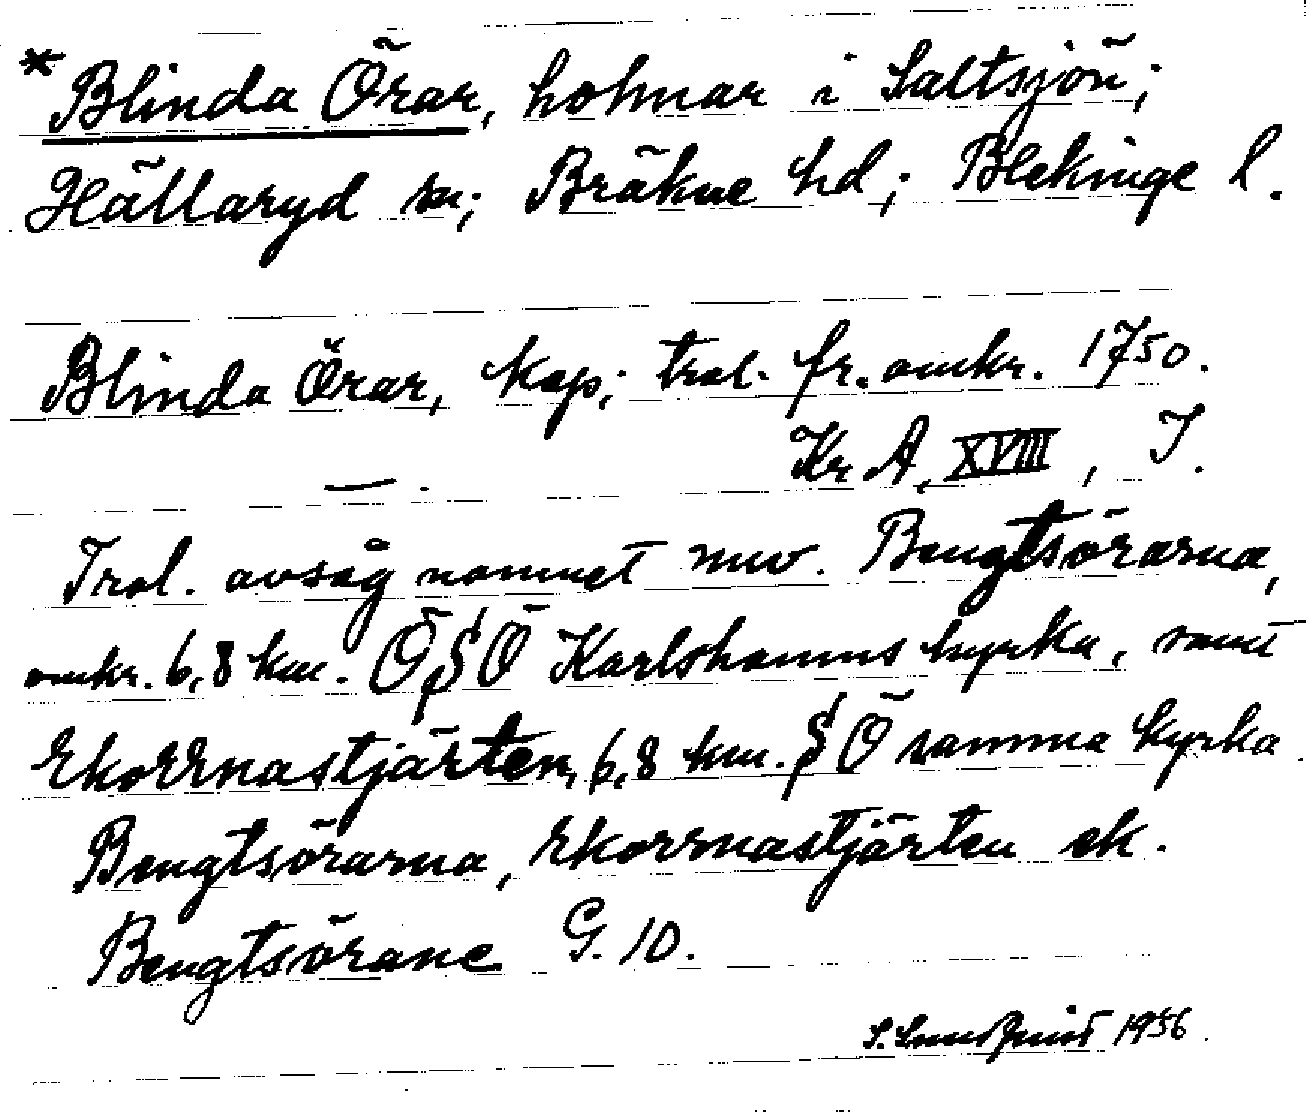 *Blinda Örar, holmar i Saltsjön;
Hällaryd sn; Bräkne hd; Blekinge l.
Blinda Örar, kop; trol. fr. omkr. 1750.
Kr A, XVIII, I.
—.
Trol. avsåg namnet nuv. Bengtsörarna,
omkr. 6,8 km. ÖSÖ Karlshamns kyrka, samt
Ekorrnastjärten, 6,8 km. SÖ samma kyrka.
Bengtsörarna, Ekorrnastjärten ek.
Bengtsörane G. 10.
S. Lundquist 1956.